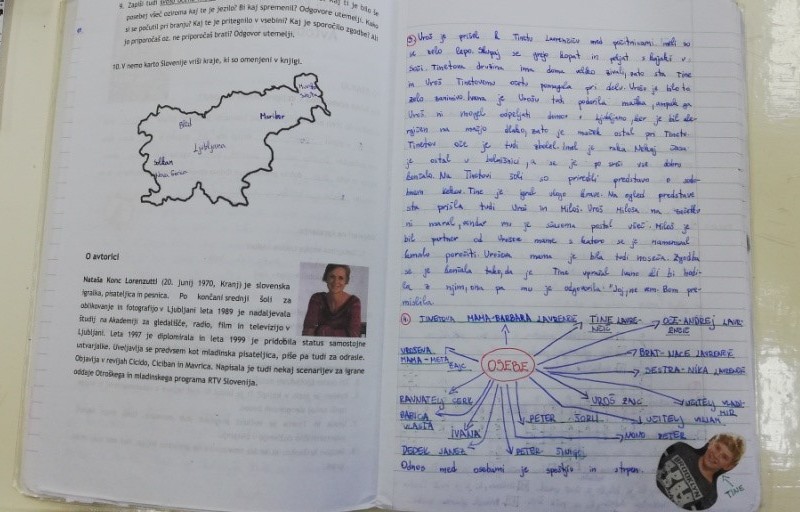 9. Zapiši tudi
posebej všeč oziroma kaj te je jezilo? Bi kaj spremenil? Odgovore utemelji. Kako
si se počutil pri branju? Kaj te je pritegnilo v vsebini? Kaj je sporočilo zgodbe? Ali
jo priporočaš oz. ne priporočaš brati? Odgovor utemelji.
10. V nemo karto Slovenije vriši kraje, ki so omenjeni v knjigi.
Bled
Maribor
Ljubljana
Solkan
Nova Gorica
O avtorici
Nataša Konc Lorenzutti (20. junij 1970, Kranj) je slovenska
igralka, pisateljica in pesnica. Po končani srednji šoli za
oblikovanje in fotografijo v Ljubljani leta 1989 je nadaljevala
študij na Akademiji za gledališče, radio, film in televizijo v
Ljubljani. Leta 1997 je diplomirala in leta 1999 je pridobila status samostojne
ustvarjalke. Uveljavlja se predvsem kot mladinska pisateljica, piše pa tudi za odrasle.
Objavlja v revijah Cicido, Ciciban in Mavrica. Napisala je tudi nekaj scenarijev za igrane
oddaje Otroškega in mladinskega programa RTV Slovenija.
3. Uroš je prišel k Tinetu Lavrenčiču med počitnicami. Imeli so
se zelo lepo. Skupaj se grejo kopat in peljat s kajaki v
Soči. Tinetova družina ima doma veliko živali, zato sta Tine
in Uroš Tinetovemu očetu pomagala pri delu. Urošu je bilo to
zelo zanimivo. Ivana je Urošu tudi podarila mačka, ampak ga
Uroš ni mogel odpeljati domov v Ljubljano, ker je bil aler
gičen na mačjo dlako, zato je maček ostal pri Tinetu.
Tinetov oče je tudi zbolel. Imel je raka. Nekaj časa
je ostal v bolnišnici, a se je po sreči vse dobro
končalo. Na Tinetovi šoli so priredili predstavo o
Tine je igral vlogo krave. Na ogled predstave
sta prišla tudi Uroš in Miloš. Uroš Miloša na začetku
ni maral, vendar mu je sčasoma postal všeč. Miloš je
bil partner od Uroševe mame s katero se je nameraval
kmalu poročiti. Uroševa mama je bila tudi noseča. Zgodba
se je končala tako, da je Tine vprašal Ivano ali bi hodi-
la z njim, ona pa mu je odgovorila: "Joj, ne vem. Bom pre-
mislila.
4. TINETOVA MAMA-BARBARA LAVRENČIČ
TINE LAVRE-
NČIČ
OČE-ANDREJ LAVR-
ENČIČ
UROŠEVA
MAMA-META
ZAJC
OSEBE
BRAT-NACE LAVRENČIČ
SESTRA-NIKA LAVRENČIČ
RAVNATELJ
UROŠ ZAJC
UČITELJ VLADI-
MIR
BABICA
VLASTA
IVANA
PETER
UČITELJ VILJAM
NONO PETER
DEDEK JANEZ
PETER
Odnos med osebami je spoštljiv in strpen.
BROOKLYN
TINE